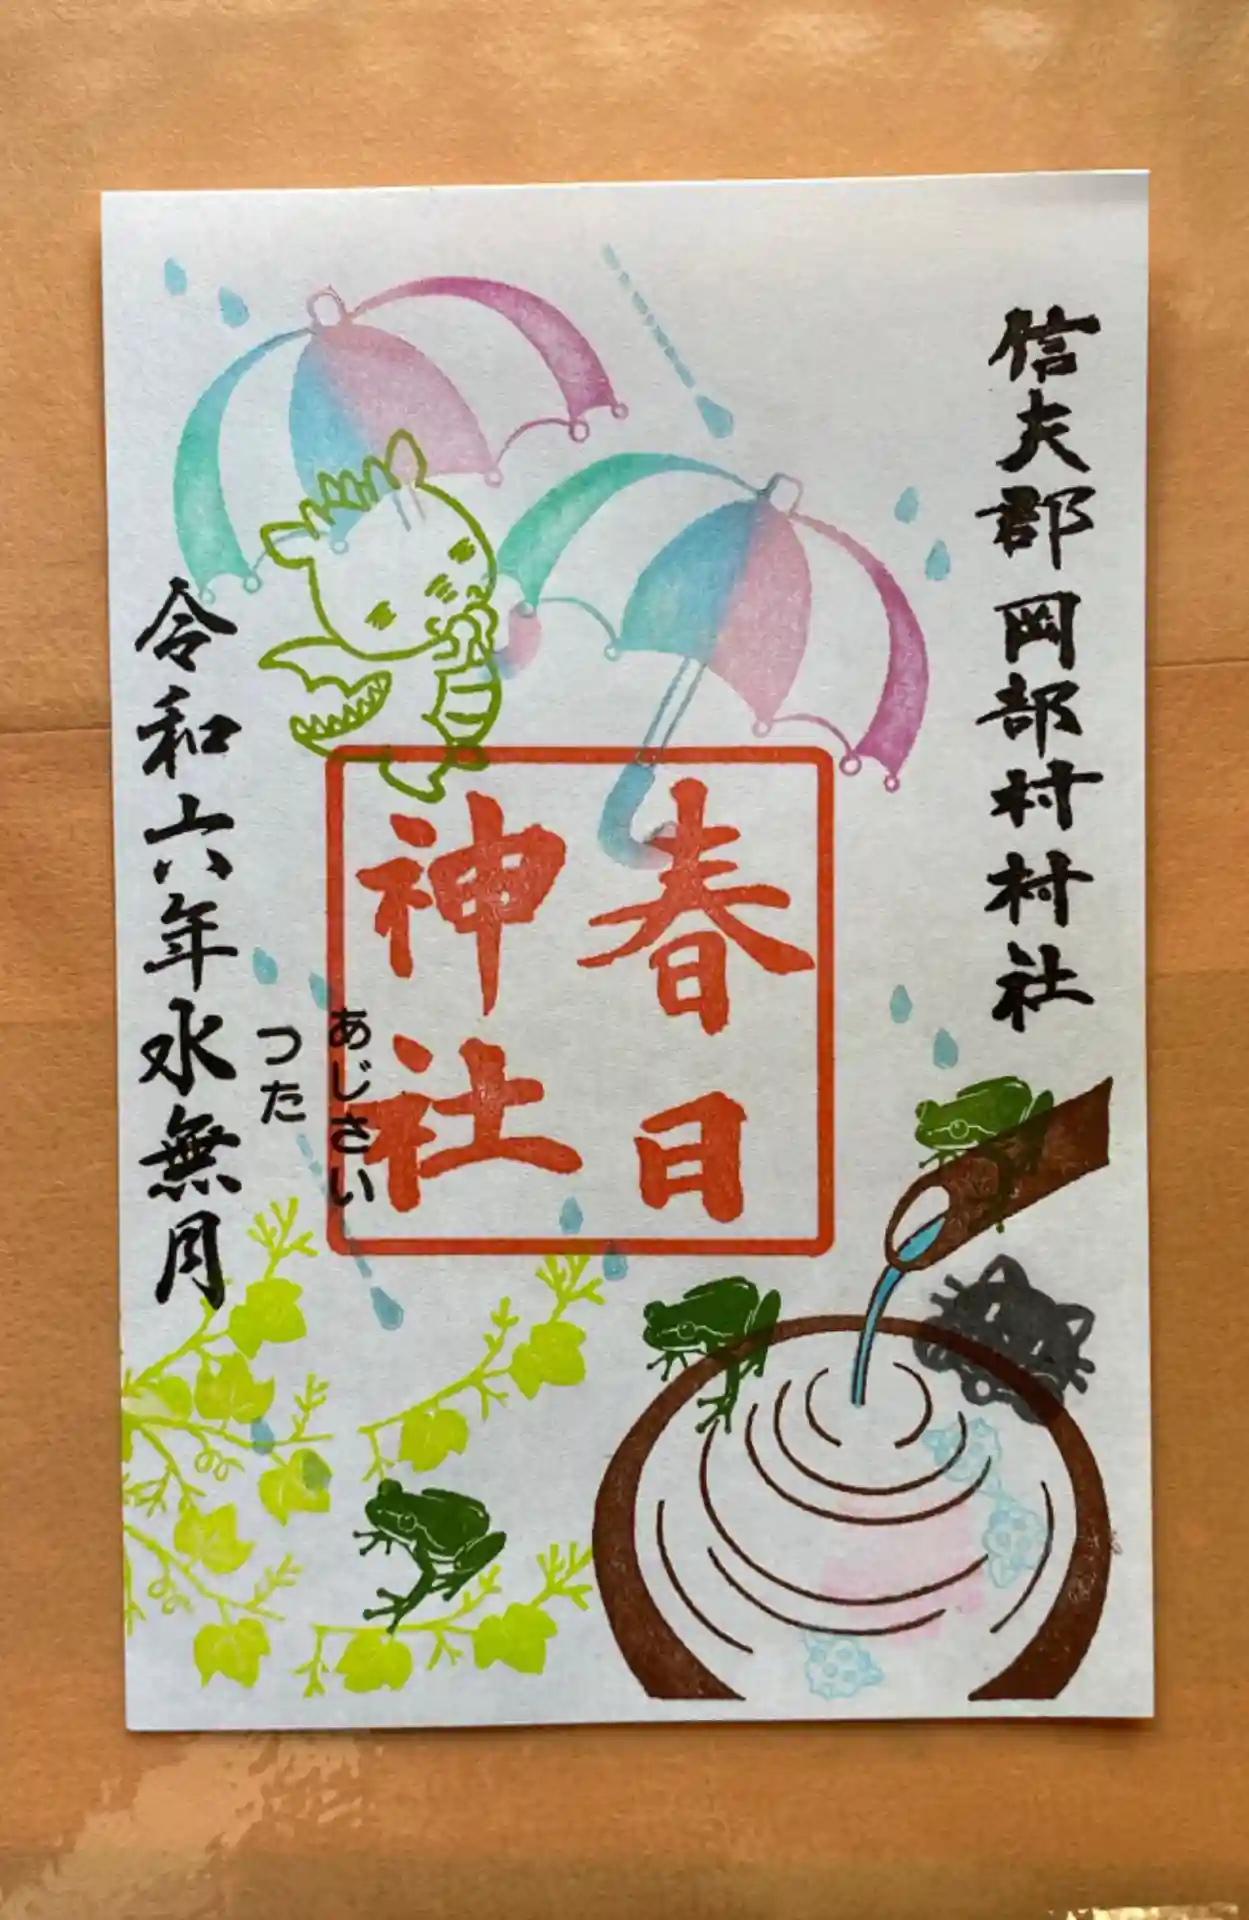 信夫郡岡部村村社
春日
神社
あじさい
つた
令和六年水無月